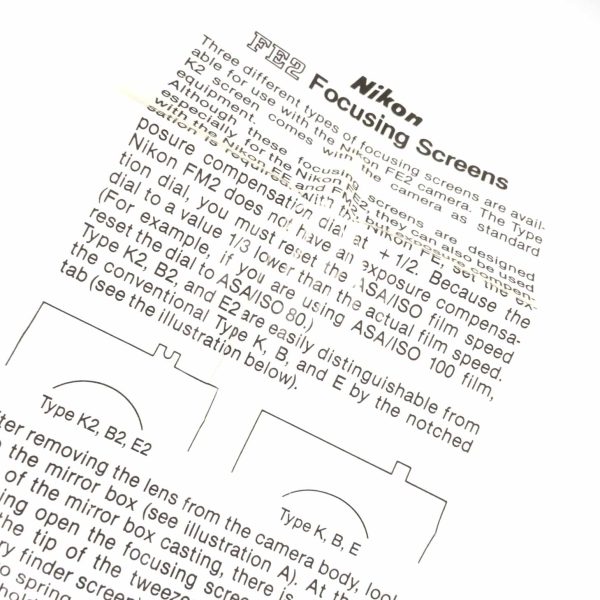 FE2
Nikon
Focusing Screens
Three different types of focusing screens are avail-
able for use with the Nikon FE2 camera. The Type
K2 screen comes with the camera as standard
equipment.
Although these focusing screens are designed
especially for the Nikon and they can also be used
with the Nikon FE
posure compensation dial at + 1/2. Because the
Nikon FM2 does not have an exposure compensa-
tion dial, you must reset the ASA/ISO film speed
dial to a value 1/3 lower than the actual film speed.
(For example, if you are using ASA/ISO 100 film,
reset the dial to ASA/ISO 80.)
Type K2, B2, and E2 are easily distinguishable from
the conventional Type K, B, and E by the notched
tab (see the illustration below).
Type K2, B2, E2
Type K, B, E
ter removing the lens from the camera body, look
the mirror box (see illustration A). At th
of the mirror box casting, there is
ing open the focusing scree
the tip of the tweeze
ry finder screen
o spring
hol